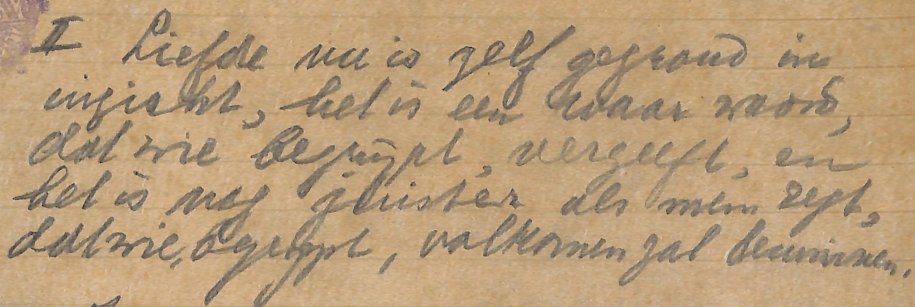 II Liefde nu is zelf gegrond in
inzicht, het is een waar woord,
dat wie begrijpt, vergeeft, en
het is nog juister als men zegt,
dat wie, begrypt, volkomen zal beminnen.